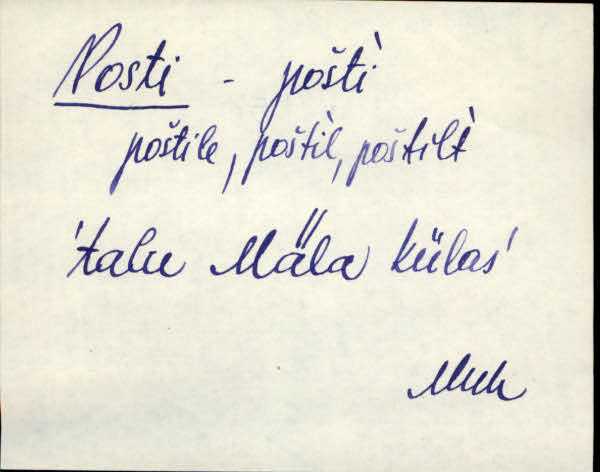 Posti - pošti̇̀
poštile, poštìl, poštilt̀
'talu Mäla külas'
Muh